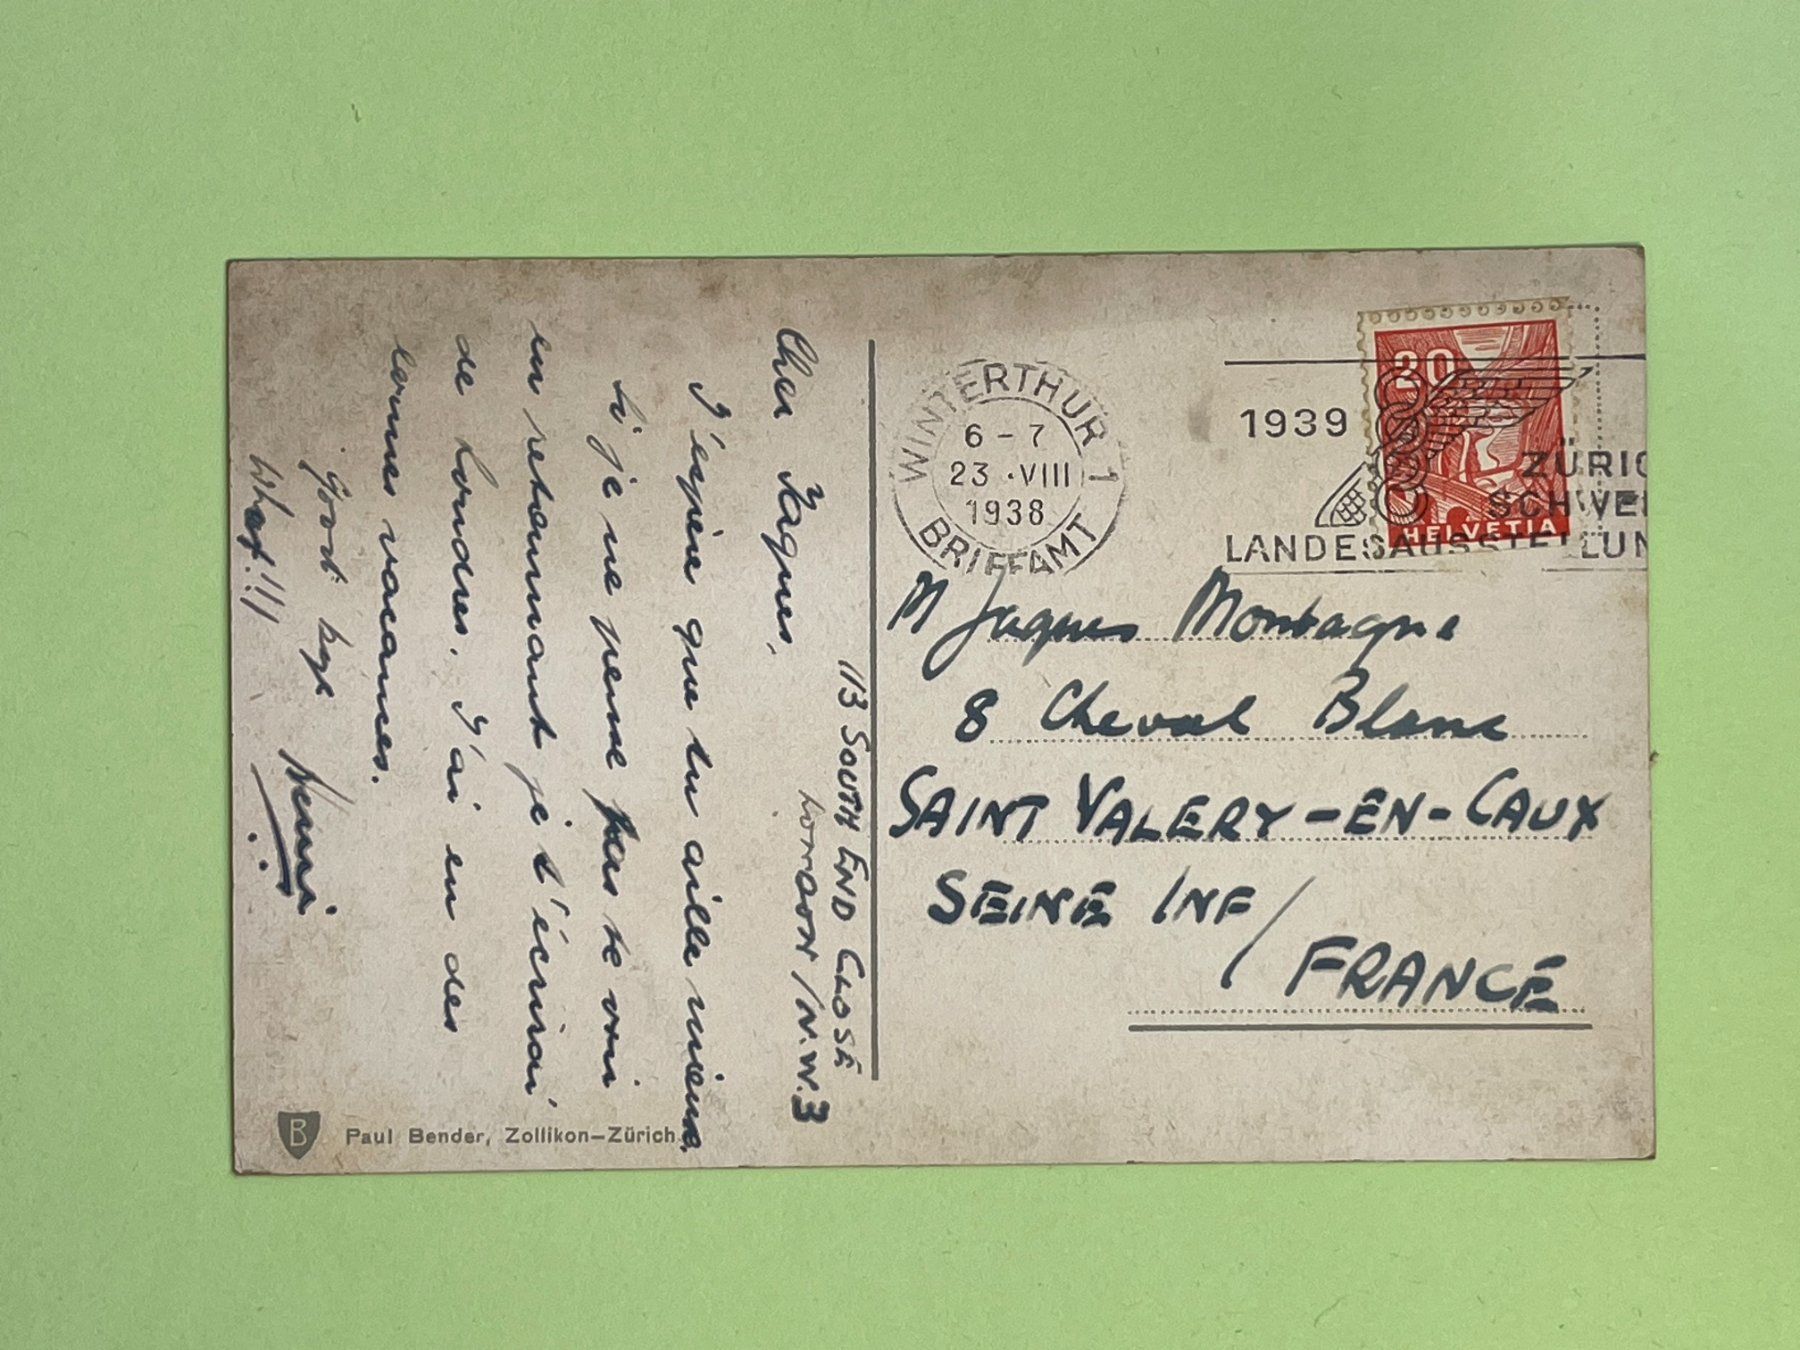 113 SOUTH END CLOSE
LONDON / N.W.3
Cher Jaques,
J'éspère que tu aille mieux.
Si je ne pense pas te voir
en retournant je t'écrirai
de Londres. J'ai eu des
bonnes vacances.
Good bye
What!!!
Henri
Paul Bender, Zollikon–Zürich
WINTERTHUR 1
6 – 7
23 ·VIII
1938
BRIEFAMT
1939
ZÜRIC
SCHWEI
LANDESAUSSTELLUN
20
HELVETIA
M Jaques Montagne
8 Cheval Blanc
SAINT VALERY-EN-CAUX
SEINE INF/
FRANCE
B